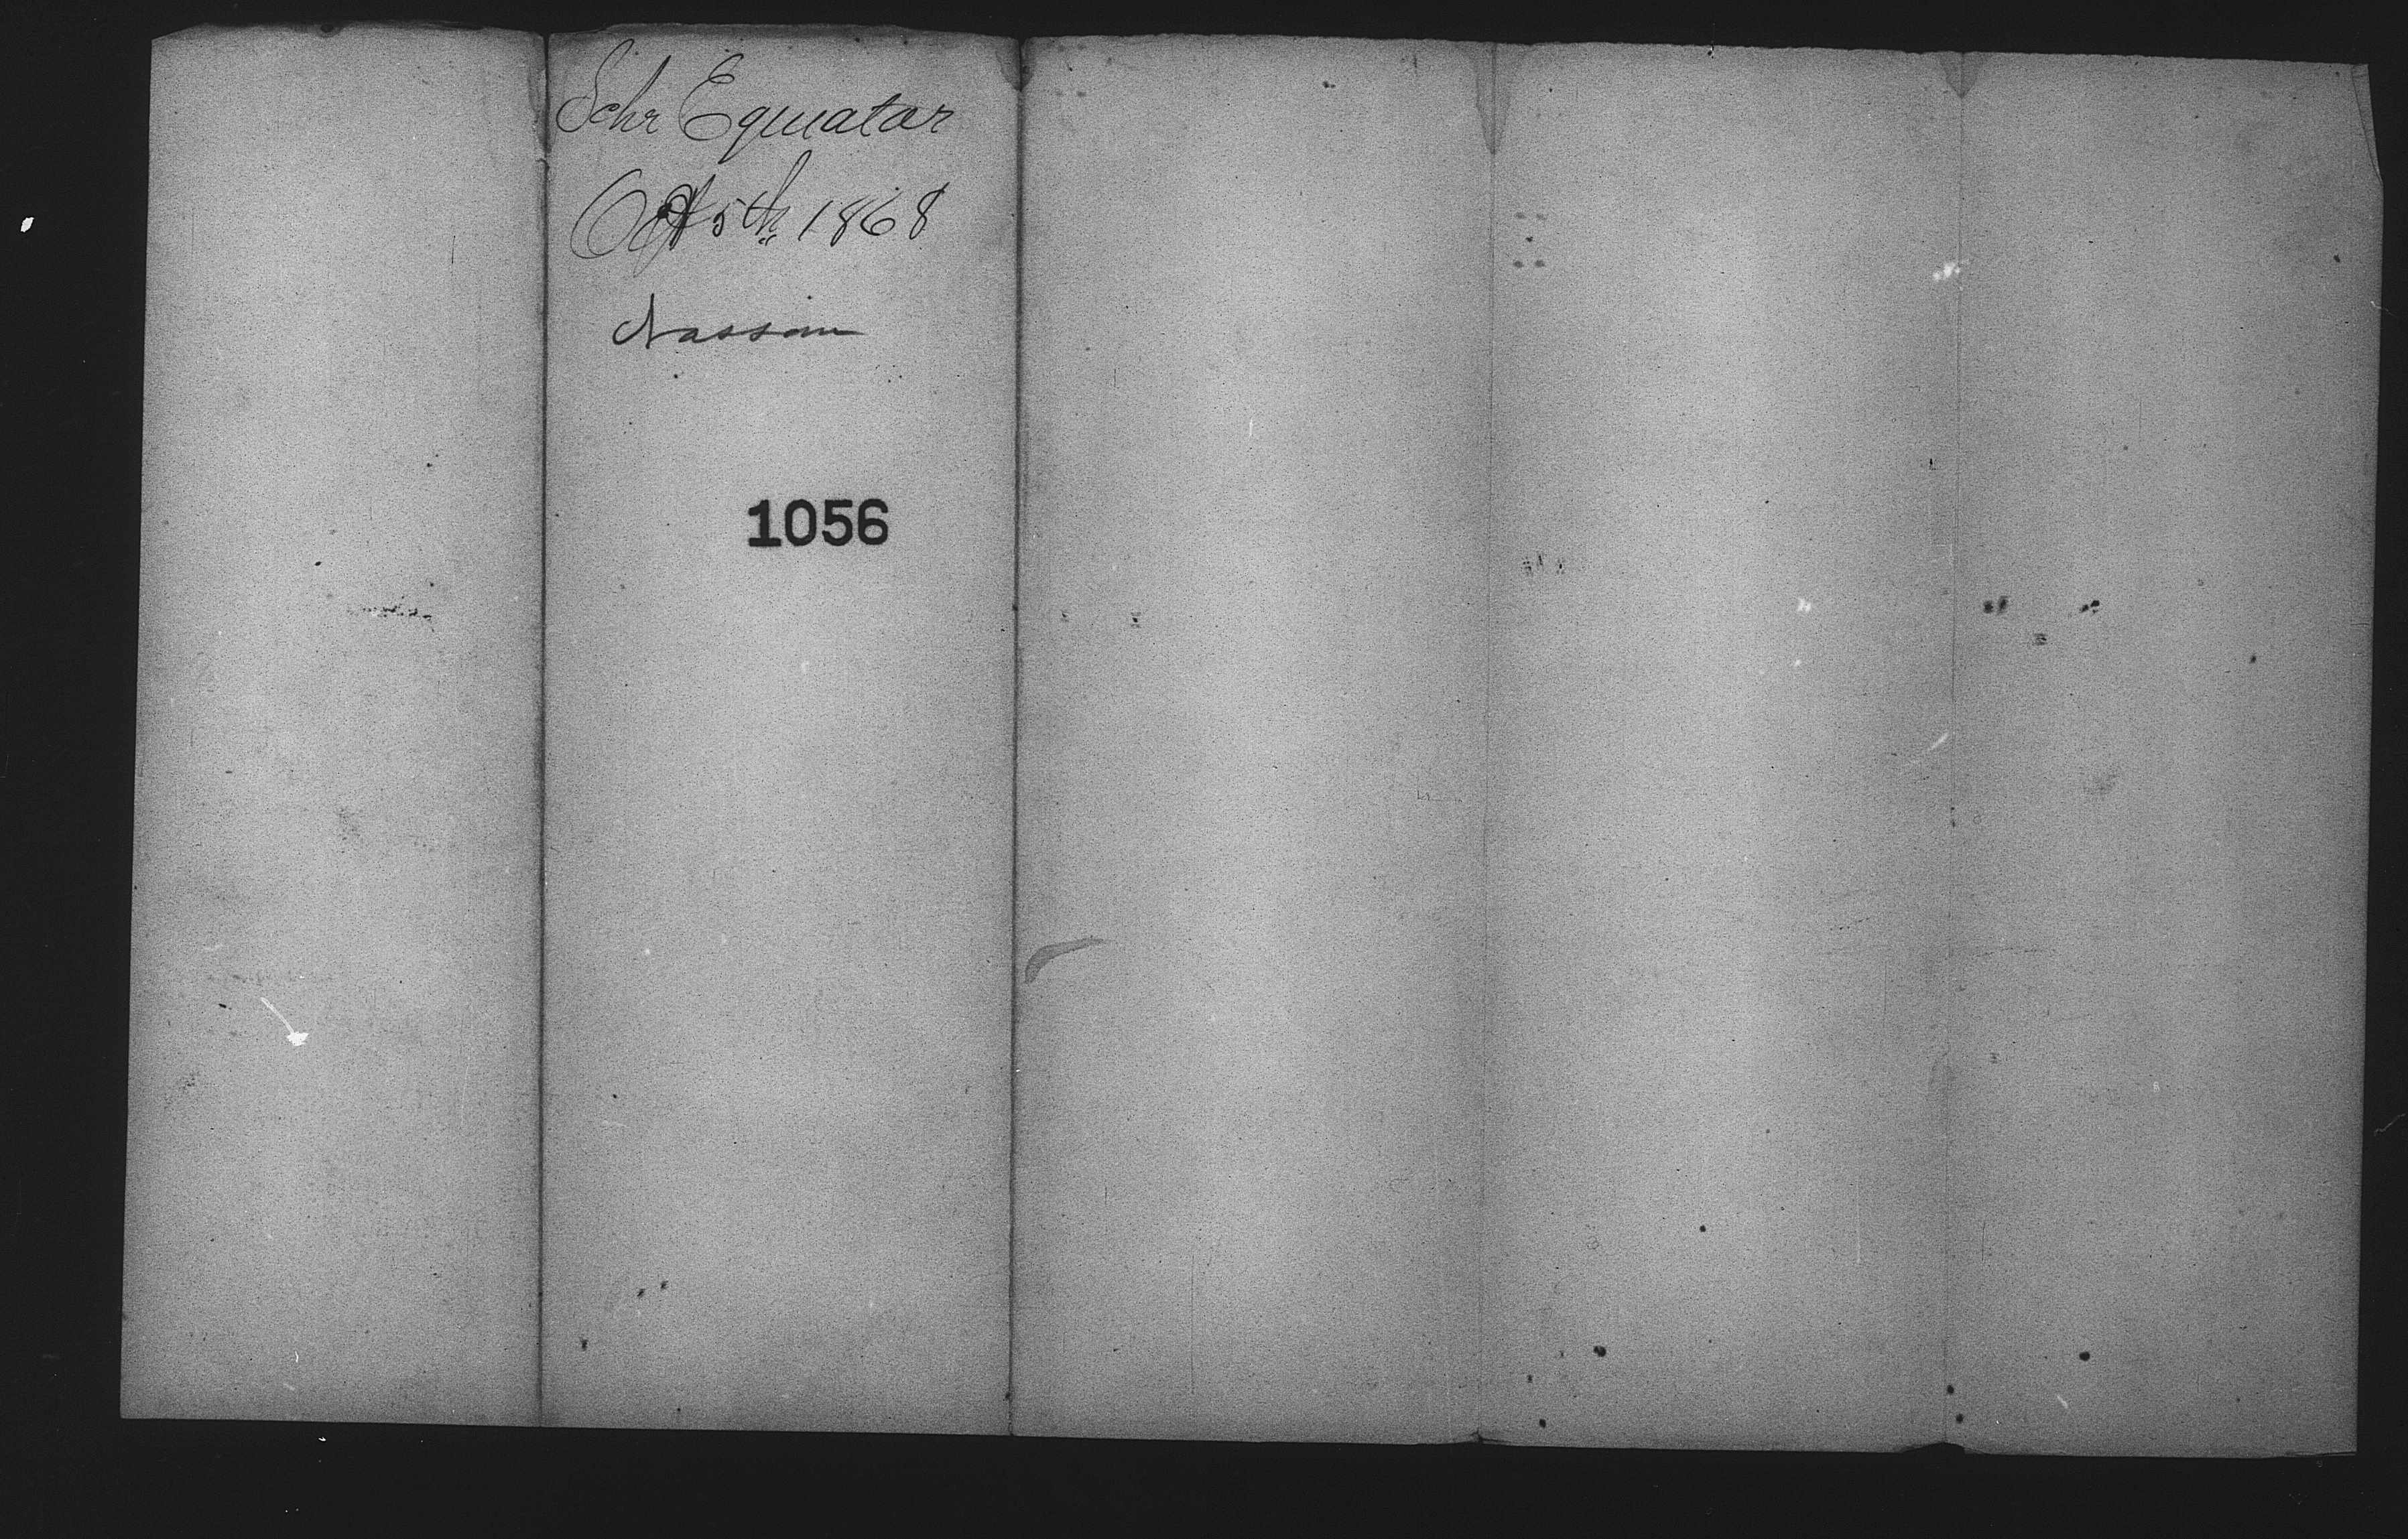 Schr Equator
Oct 5th 1868
Nassau
1056